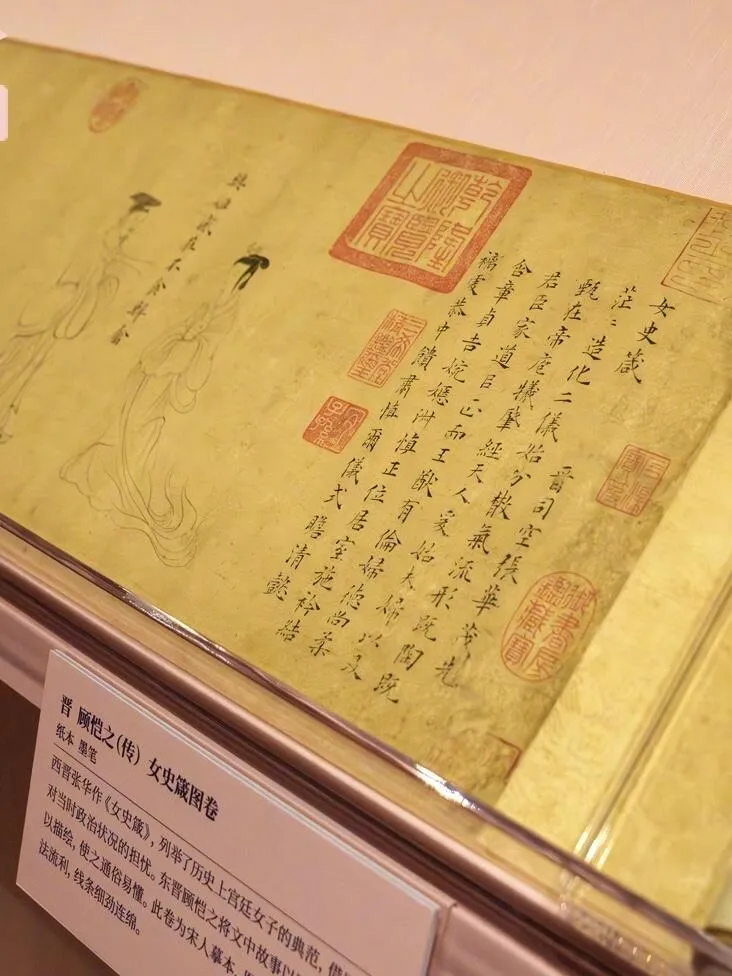 女史箴
晋司空張華茂先
茫〻造化二儀始分散氣流形既陶既
甄在帝庖犧肇經天人爰始夫婦以及
君臣家道㠯正而王猷有倫婦德尚柔
含章貞吉婉嫕淑慎正位居室施衿結
褵虔恭中饋肅慎爾儀式瞻清懿
樊姬感莊不食鮮禽
乾隆御覽之寶
三希堂精鑑璽
宜子孫
御書房鑑藏寶
晋 顾恺之(传) 女史箴图卷
纸本 墨笔
西晋张华作《女史箴》，列举了历史上宫廷女子的典范，借
对当时政治状况的担忧。东晋顾恺之将文中故事以
以描绘，使之通俗易懂。此卷为宋人摹本，
法流利，线条细劲连绵。